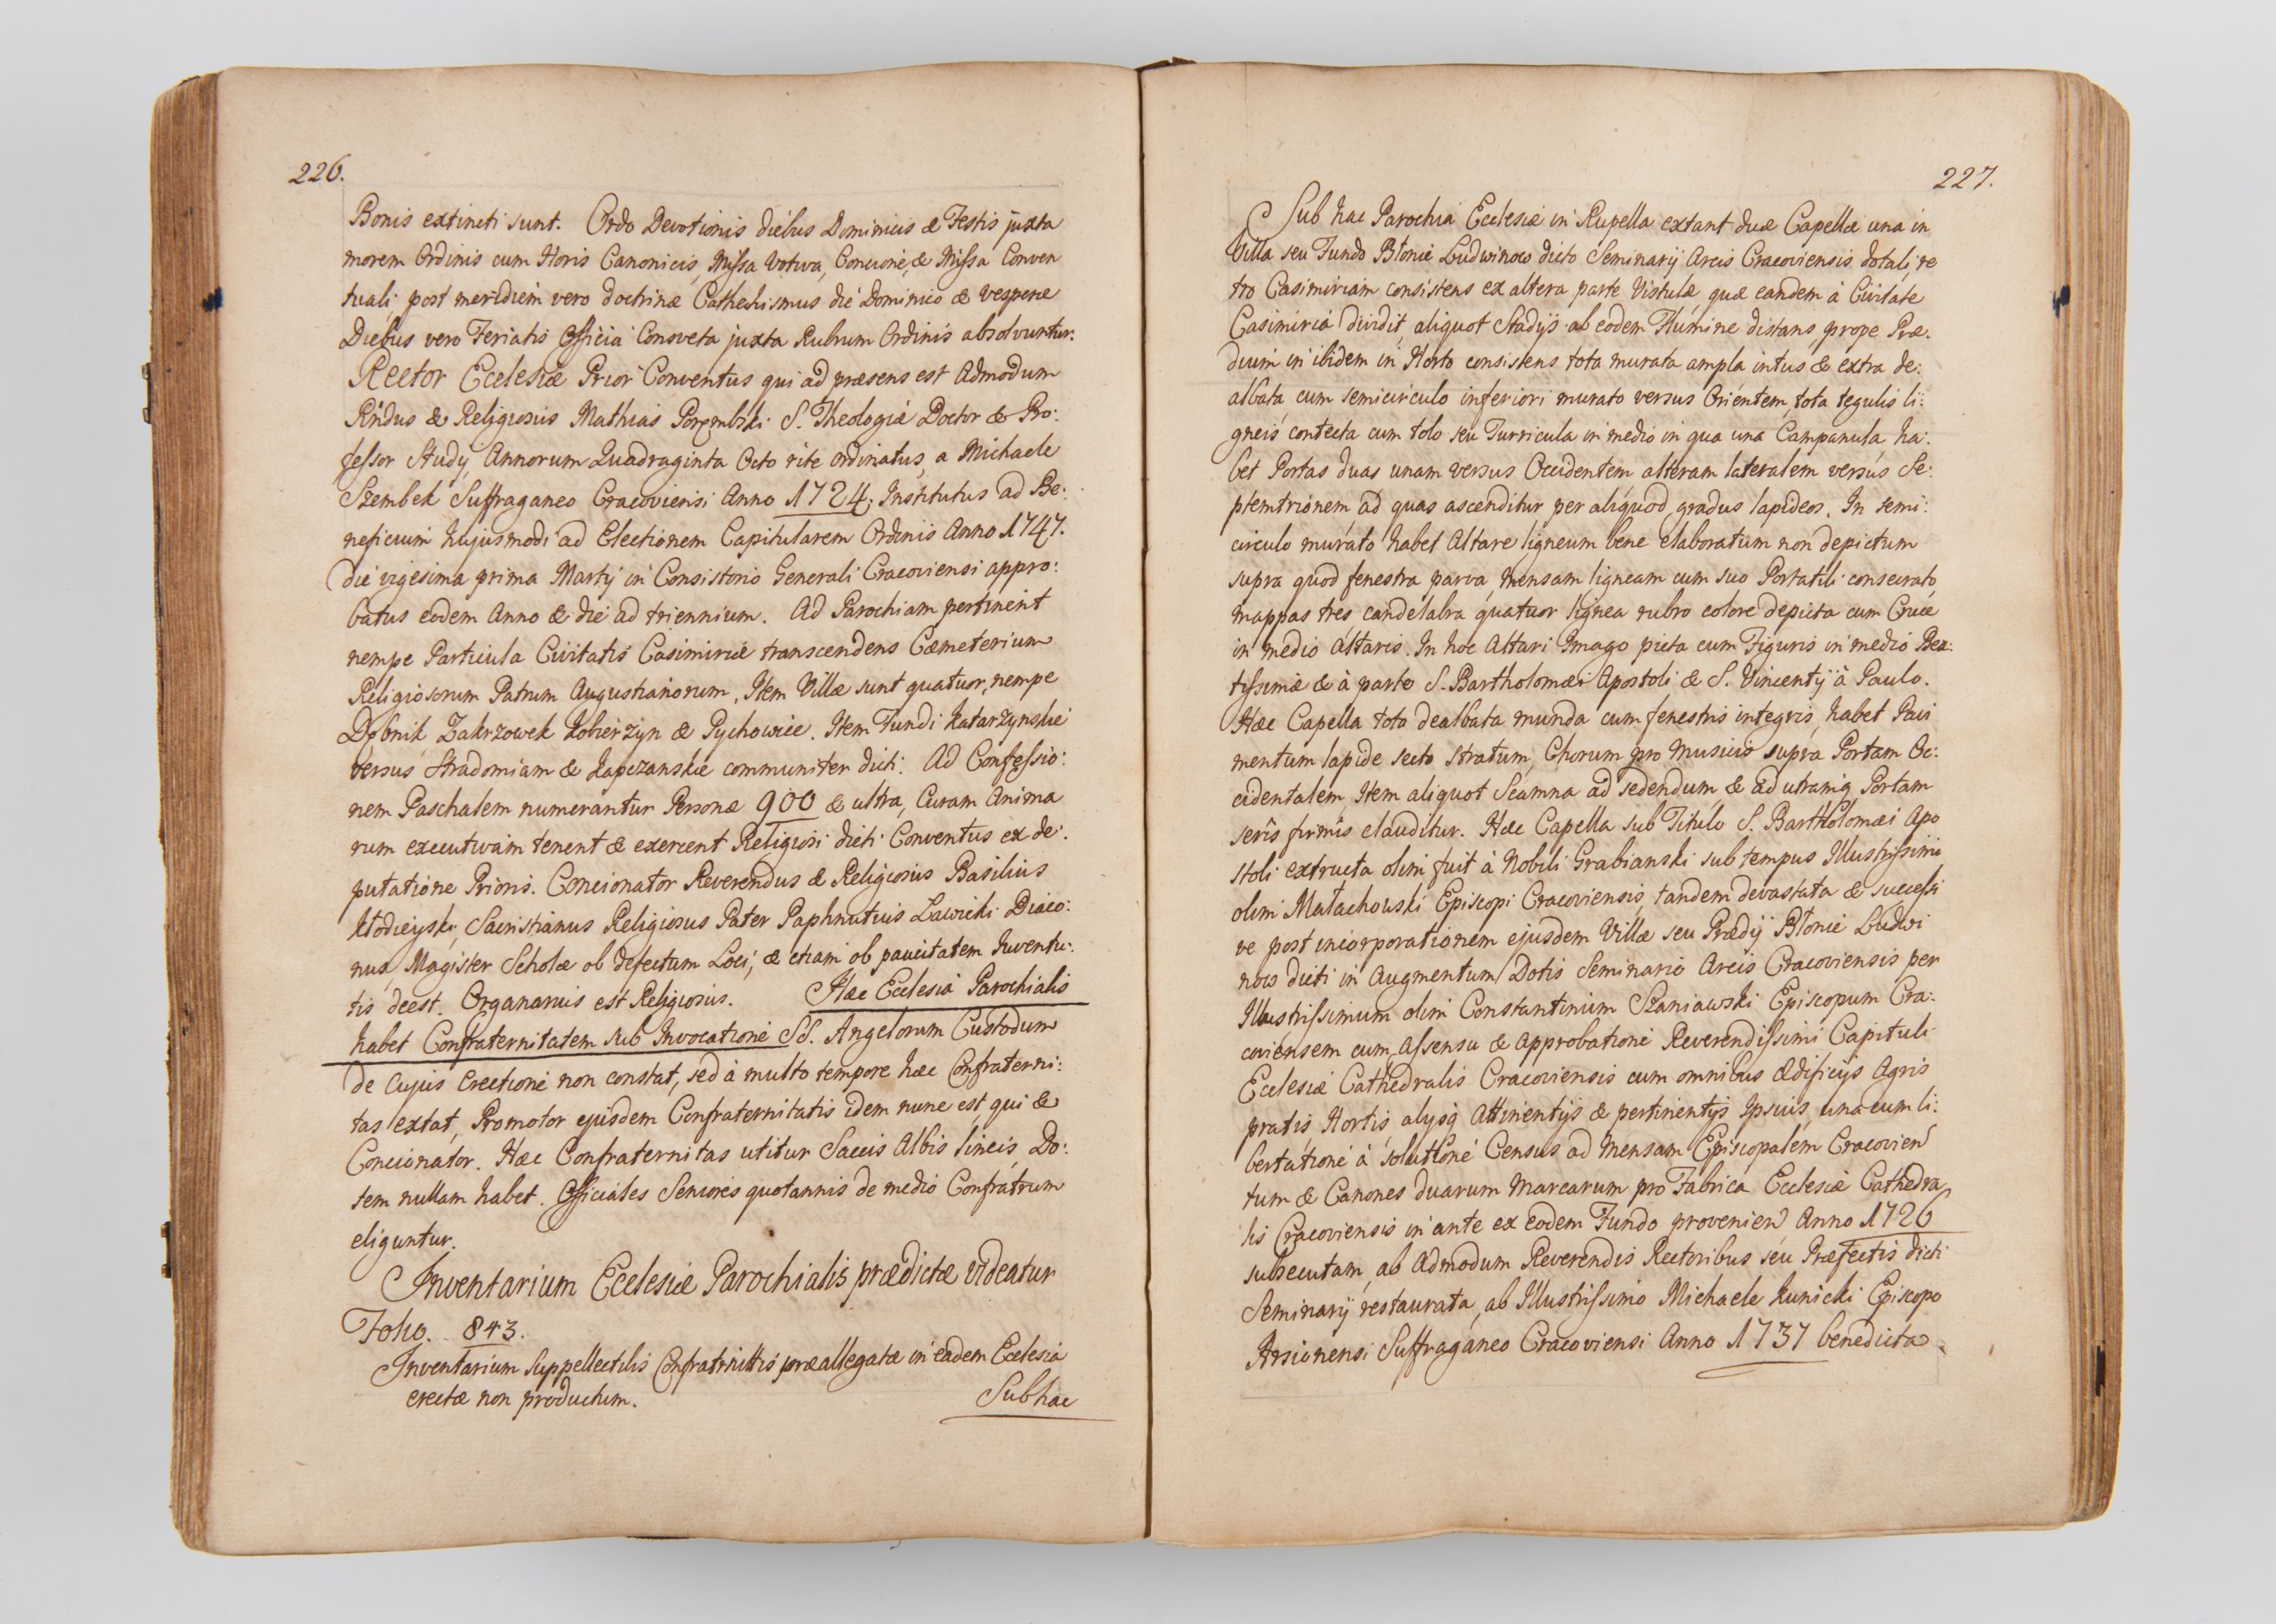 226.
Bonis extincti sunt. Ordo Devotionis diebus Dominicis & Festis juxta
morem Ordinis cum Horis Canonicis, Missa Votiva, Concione, & Missa Conven
tuali, post meridiem vero doctrinæ Cathechismus die Dominico & vespere
Diebus vero Feriatis Officia Consveta juxta Rubrum Ordinis absolvuntur.
Rector Ecclesiæ Prior Conventus qui ad præsens est Admodum
Rndus & Religiosus Mathias Porembski S. Theologiæ Doctor & Pro:
fessor Study, Annorum Quadraginta Octo rite ordinatus, a Michaele
Szembek Suffraganeo Cracoviensi Anno 1724. Institutus ad Be:
neficium hujusmodi ad Electionem Capitularem Ordinis Anno 1747.
die vigesima prima Martij in Consistorio Generali Cracoviensi appro:
batus eodem Anno & die ad triennium. Ad Parochiam pertinent
nempe Particula Civitatis Casimiriæ transcendens Cæmeterium
Religiosorum Patrum Augustianorum, Item Villæ sunt quatuor, nempe
Dębnik Zakrzowek Kobierzyn & Pychowice. Item Fundi Katarzynskie
versus Stradomiam & Kapczanskie communiter dicti. Ad Confessio:
nem Paschalem numerantur Personæ 900 & ultra, Curam Anima
rum executivam tenent & exercent Religiosi dicti Conventus ex de:
putatione Prioris. Concionator Reverendus & Religiosus Basilius
Kłodieyski, Sacristianus Religiosus Pater Paphnutius Lawicki Diaco:
nus, Magister Scholæ ob defectum Loci, & etiam ob paucitatem Juventu:
tis deest. Organarius est Religiosus. Hæc Ecclesia Parochialis
habet Confraternitatem sub Invocatione SS. Angelorum Custodum
de Cujus Erectione non constat, sed à multo tempore hæc Confraterni:
tas extat, Promotor ejusdem Confraternitatis idem nunc est qui &
Concionator. Hæc Confraternitas utitur Saccis Albis lineis, Do:
tem nullam habet. Officiales Seniores quotannis de medio Confratrum
eliguntur.
Inventarium Ecclesiæ Parochialis prædictæ videatur
Folio. 843.
Inventarium Suppellectilis Confratrnittis præallegatæ in eadem Ecclesia
erectæ non productum.
Sub hac
227.
Sub hac Parochia Ecclesiæ in Rupella extant duæ Capellæ una in
Villa seu Fundo Błonie Ludwinow dicto Seminarij Arcis Cracoviensis dotali re
tro Casimiriam consistens ex altera parte Vistulæ quæ eandem à Civitate
Casimiria dividit, aliquot Stadijs ab eodem Flumine distans, prope Præ:
dium in ibidem in Horto consistens tota murata ampla intus & extra de:
albata, cum semicirculo inferiori murato versus Orientem, tota tegulis li:
gneis contecta cum tolo seu Turricula in medio in qua una Campanula ha:
bet Portas duas unam versus Occidentem alteram lateralem versus Se:
ptemtrionem ad quas ascenditur per aliquod gradus lapideos. In semi:
circulo murato habet Altare ligneum bene elaboratum non depictum
supra quod fenestra parva, mensam ligneam cum suo Portatili consecrato,
mappas tres candelabra quatuor lignea rubro colore depicta cum Cruce
in medio Altaris. In hoc Altari Imago picta cum Figuris in medio Bea:
tissimæ & à parte S. Bartholomæi Apostoli & S. Vincentij à Paulo.
Hæc Capella tota dealbata munda cum fenestris integris, habet Pavi
mentum lapide secto stratum, Chorum pro Musicis supra Portam Oc:
cidentalem, Item aliquot Scamna ad sedendum, & ad utramq Portam
seris firmis clauditur. Hæc Capella sub Titulo S. Bartholomæi Apo
stoli extructa olim fuit à Nobili Grabianski sub tempus Illustrissimi
olim Małachowski Episcopi Cracoviensis, tandem devastata & successi
ve post incorporationem ejusdem Villæ seu Prædij Błonie Ludwi
now dicti in Augmentum Dotis Seminario Arcis Cracoviensis per
Illustrissimum olim Constantinum Szaniawski Episcopum Cra:
coviensem cum Assensu & Approbatione Reverendissimi Capituli
Ecclesiæ Cathedralis Cracoviensis cum omnibus ædificijs Agris
pratis, Hortis, alijsq Attinentijs & pertinentijs Ipsius, una cum li:
bertatione à solutione Census ad Mensam Episcopalem Cracovien
tum & Canones duarum Marcarum pro Fabrica Ecclesiæ Cathedra
lis Cracoviensis in ante ex eodem Fundo provenien Anno 1726
subsecutam, ab Admodum Reverendis Rectoribus seu Præfectis dicti
Seminarij restaurata, ab Illustrissimo Michaele Kunicki Episcopo
Arsionensi Suffraganeo Cracoviensi Anno 1737 benedicta.